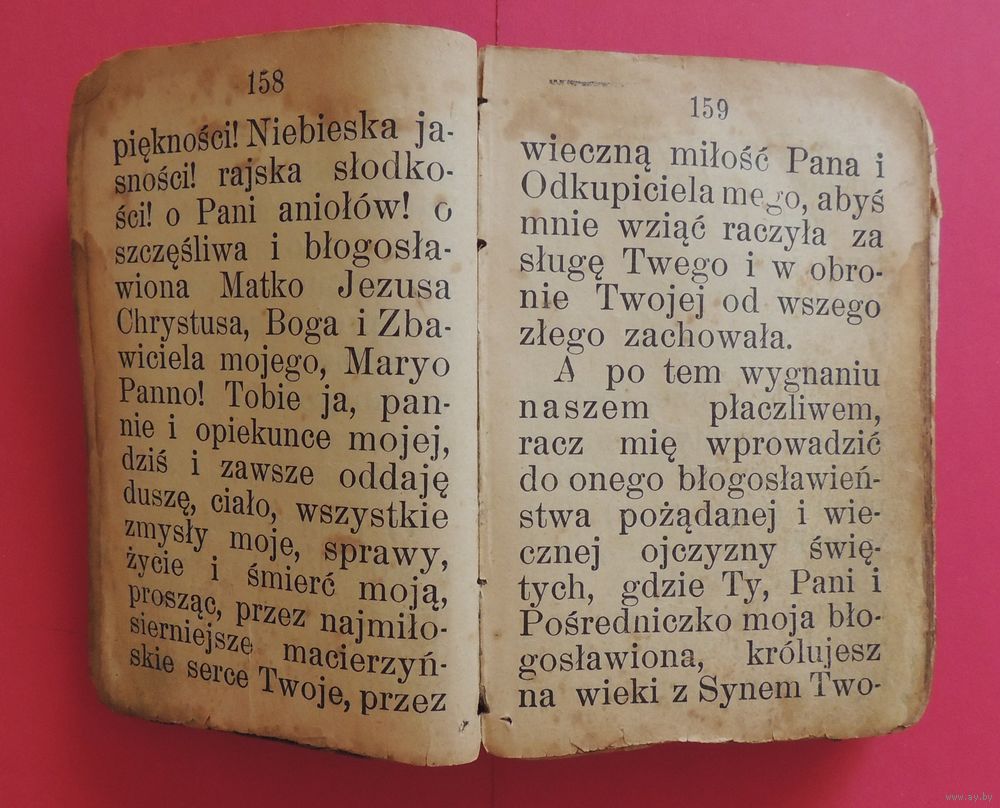 158
piękności! Niebieska ja-
sności! rajska słodko-
ści! o Pani aniołów! o
szczęśliwa i błogosła-
wiona Matko Jezusa
Chrystusa, Boga i Zba-
wiciela mojego, Maryo
Panno! Tobie ja, pan-
nie i opiekunce mojej,
dziś i zawsze oddaję
duszę, ciało, wszystkie
zmysły moje, sprawy,
życie i śmierć moją,
prosząc, przez najmiło-
sierniejsze macierzyń-
skie serce Twoje, przez
159
wieczną miłość Pana i
Odkupiciela mego, abyś
mnie wziąć raczyła za
sługę Twego i w obro-
nie Twojej od wszego
złego zachowała.
A po tem wygnaniu
naszem płaczliwem,
racz mię wprowadzić
do onego błogosławień-
stwa pożądanej i wie-
cznej ojczyzny świę-
tych, gdzie Ty, Pani i
Pośredniczko moja bło-
gosławiona, królujesz
na wieki z Synem Two-
www.ay.by